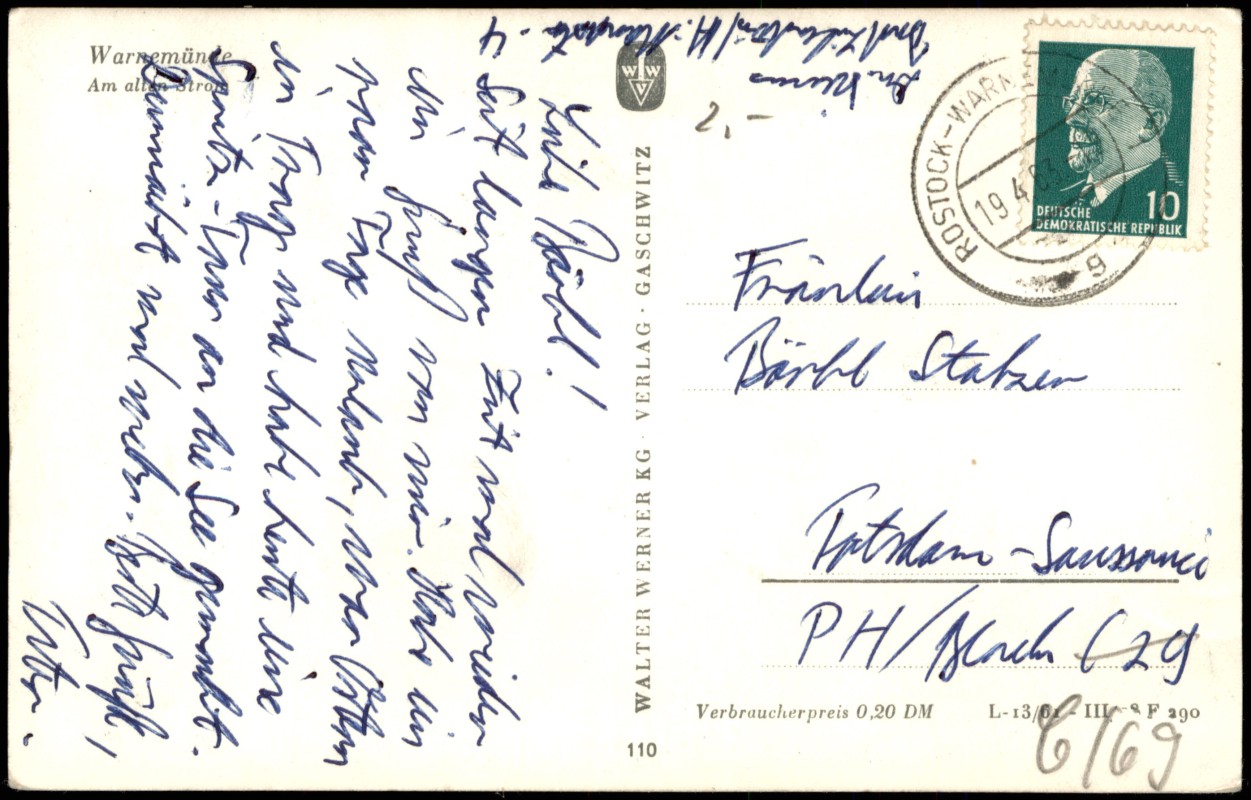 Warnemünde
Am alten Strom
Liebe Bärbl!
Seit langer Zeit mal wieder
ein Gruß von mir. Habe ein
paar Tage Urlaub, über Ostern
in Prag und habe heute eine
Spritz-Tour an die See gemacht.
Demnächst mal mehr. Recht herzlichst,
Peter.
WWV
WALTER WERNER KG · VERLAG · GASCHWITZ
110
2,-
ROSTOCK-WARN
19.4.63
g
10
DEUTSCHE
DEMOKRATISCHE REPUBLIK
Fräulein
Bärbl
Potsdam-Sanssouci
PH/Block C 29
Verbraucherpreis 0,20 DM
L-13/61 - III F 290
C/69